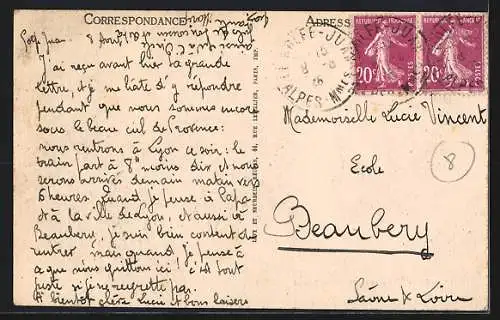 CORRESPONDANCE
ADRESSE
Golfe Juan 8 Avril
J'ai reçu avant hier ta grande
lettre, et je me hâte d'y répondre
pendant que nous sommes encore
sous le beau ciel de Provence:
nous rentrons à Lyon ce soir: le
train part à 8h moins dix et nous
serons arrivés demain matin vers
6 heures. Quand je pense à Papa
et à la ville de Lyon, et aussi à
Beaubery, je suis bien contente de
rentrer mais quand je pense à
ce que nous quittons ici! c'est tout
juste si je ne regrette pas.
A bientôt chère Lucie et bons baisers
GOLFE-JUAN
ALPES-MMES
REPUBLIQUE FRANÇAISE
20c
POSTES
REPUBLIQUE FRANÇAISE
20c
POSTES
Mademoiselle Lucie Vincent
Ecole
Beaubery
Saône & Loire
8